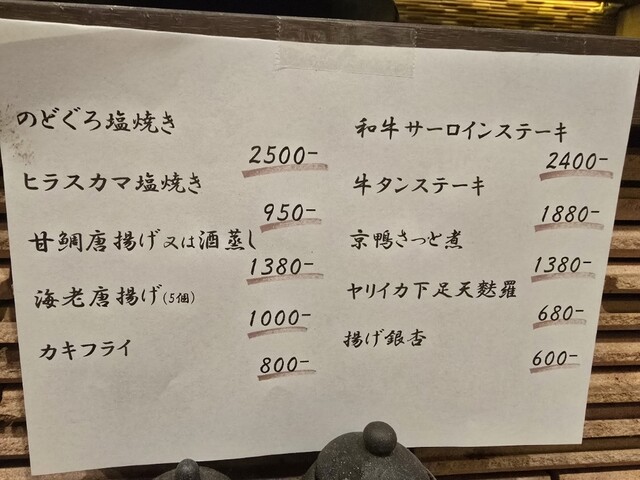 のどぐろ塩焼き
2500-
ヒラスカマ塩焼き
950-
甘鯛唐揚げ又は酒蒸し
1380-
海老唐揚げ(5個)
1000-
カキフライ
800-
和牛サーロインステーキ
2400-
牛タンステーキ
1880-
京鴨さっと煮
1380-
ヤリイカ下足天麩羅
680-
揚げ銀杏
600-